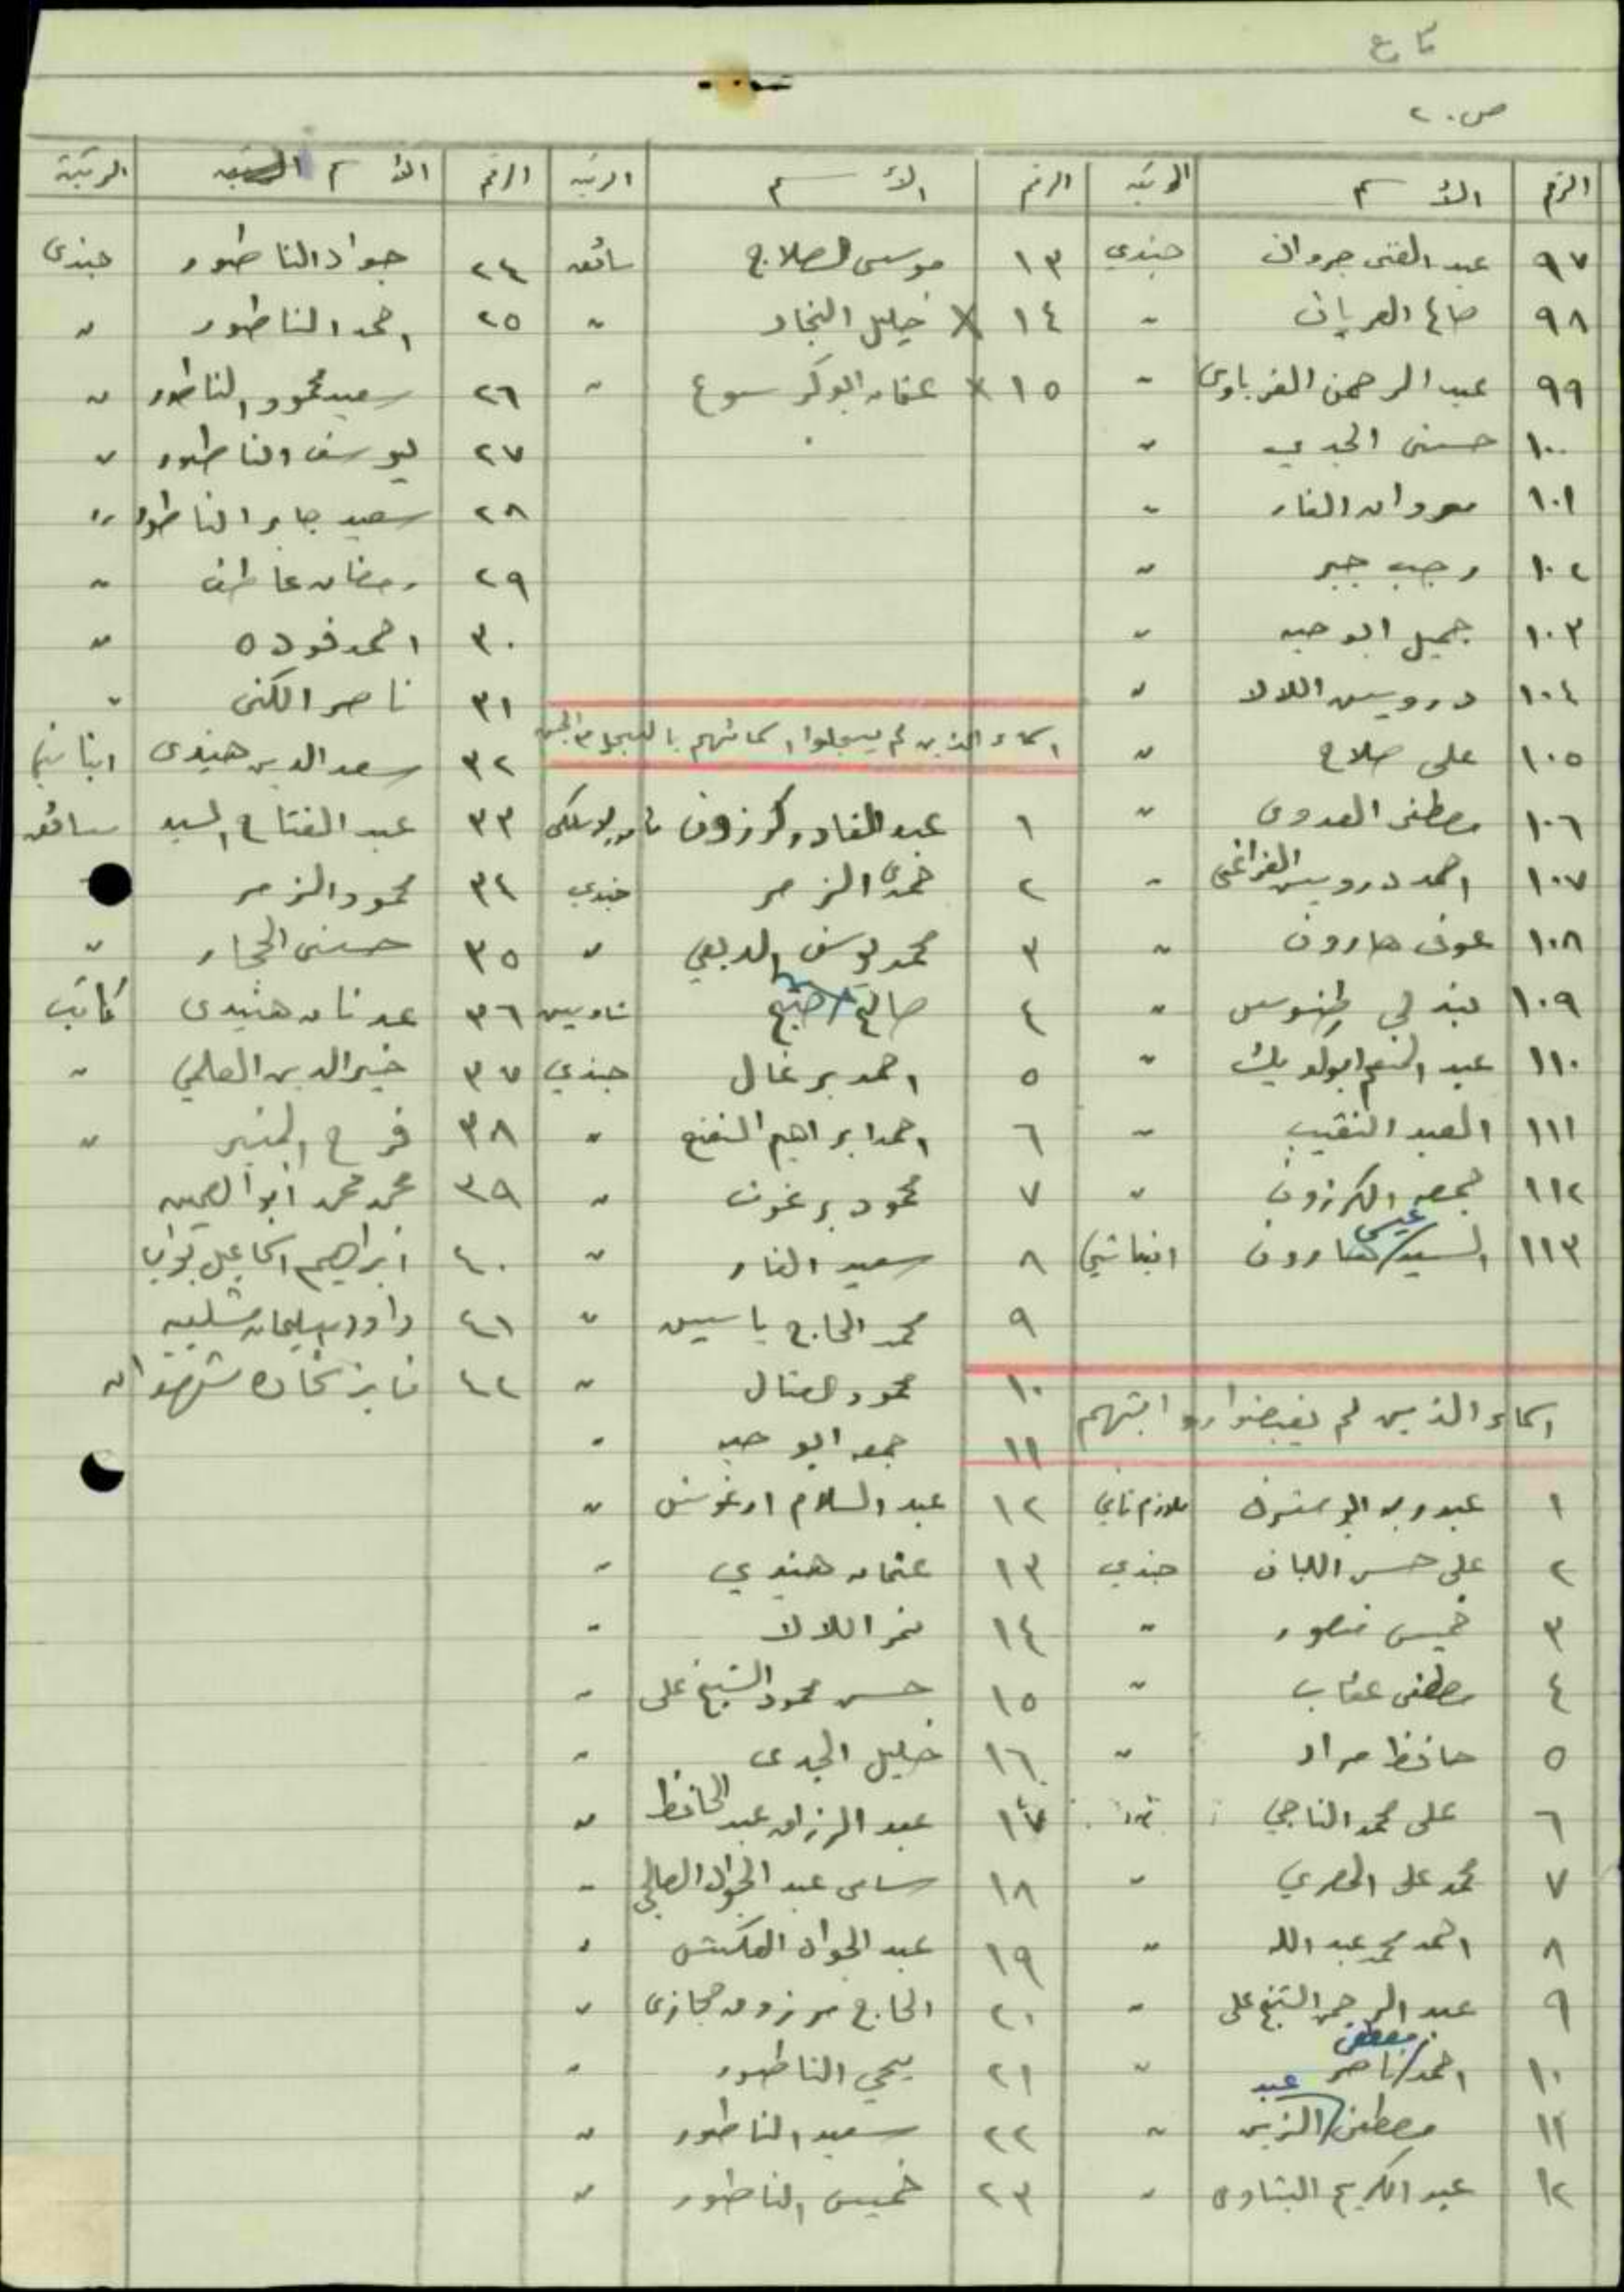 ص. ٢
الرقم الأسم الرتبه
٩٧ عبد الغنى جروان جندي
٩٨ صالح العريان "
٩٩ عبد الرحمن الغرباوى "
١٠٠ حسنى الجدي "
١٠١ مروان الفار "
١٠٢ رجب جبر "
١٠٣ جميل ابو حبه "
١٠٤ درويس اللالا "
١٠٥ على صلاح "
١٠٦ مصطفى العدوى "
١٠٧ احمد درويس "
١٠٨ عوف هارون "
١٠٩ بندلي طنوس "
١١٠ عبد المنعم ابولويك "
١١١ العبد النقيب "
١١٢ جمعه الكرزون "
١١٣ السيد عيسى هارون انباشي
اسماء الذين لم يقبضوا رواتبهم
١ عبد ربه ملازم ثاني
٢ على حسن اللبان جندي
٣ خميس منصور "
٤ مصطفى عقاب "
٥ حافظ مراد "
٦ على محمد الناجي "
٧ محمد على المصري "
٨ احمد محمد عبد الله "
٩ عبد الرحمن الشيخ على "
١٠ احمد مصطفى ناصر "
١١ مصطفى عبد الزين "
١٢ عبد الكريم البشاوى "
الرقم الأسم الرتبه
١٣ موسى الصلاج سائق
١٤ X خليل النجار "
١٥ X عثمان ابوكر سوع "
اسماء الذين لم يسجلوا اسمائهم بالسجل
١ عبد القادر كرزون لاسلكى
٢ حمدى الزمر جندي
٣ محمد يوسف الدبعي "
٤ صالح شاويس
٥ احمد برغال جندي
٦ احمد ابراهيم "
٧ محمود برغوث "
٨ سعيد الفار "
٩ محمد الحاج ياسين "
١٠ محمود العتال "
١١ جمعه ابو حبه "
١٢ عبد السلام ارغوش "
١٣ عثمان هنيدي "
١٤ نمر اللالا "
١٥ حسن محمود الشيخ على "
١٦ خليل الجدى "
١٧ عبد الرزاق عبد الحافظ "
١٨ سامى عبد الجواد الصالحي "
١٩ عبد الجواد العكش "
٢٠ الحاج مرزوق حجازى "
٢١ يحي الناطور "
٢٢ سعيد الناطور "
٢٣ خميس الناطور "
الرقم الأسم الرتبة
٢٤ جواد الناطور جندى
٢٥ احمد الناطور "
٢٦ سعيد محمود الناطور "
٢٧ يوسف الناطور "
٢٨ سعيد جابر الناطور "
٢٩ رمضان عاطف "
٣٠ احمد فوده "
٣١ ناصر الكنى "
٣٢ سعد الدين هنيدى انباشي
٣٣ عبد الفتاح السيد سائق
٣٤ محمود الزمر
٣٥ حسنى الحجار "
٣٦ عدنان هنيدى كاتب
٣٧ خير الدين العلمي "
٣٨ فرح المنير "
٣٩ محمد محمد ابو العينين
٤٠ ابراهيم اسماعيل
٤١ داود سليمان شلبيه
٤٢ فايز شهوان